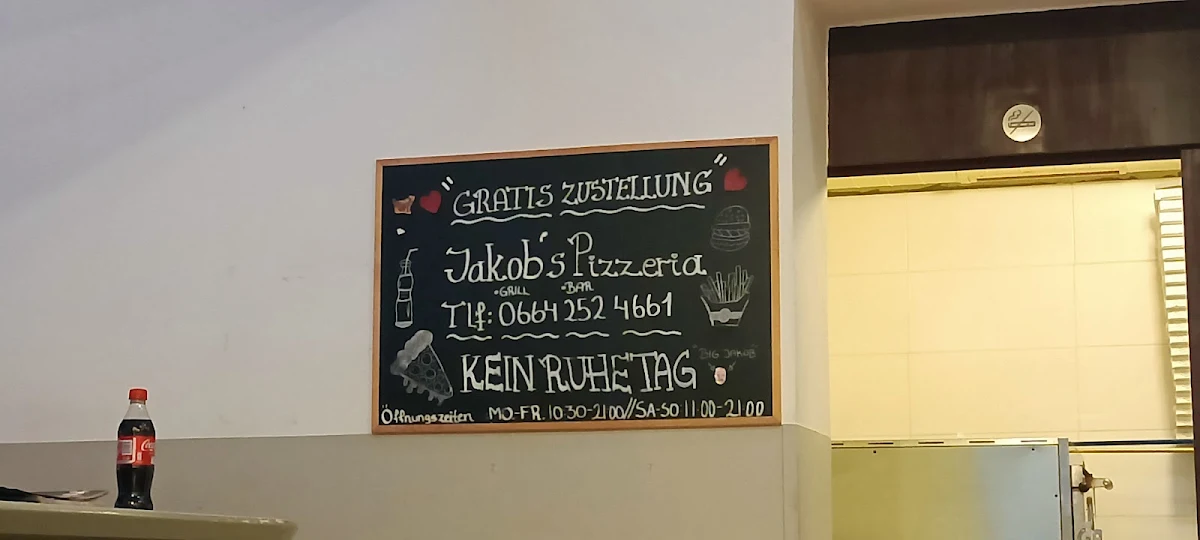 "GRATIS ZUSTELLUNG"
Jakob's Pizzeria
•GRILL •BAR
Tlf: 0664 252 4661
KEIN RUHETAG
BIG JAKOB
Öffnungszeiten MO-FR. 10:30-21:00//SA-SO 11:00-21:00
Coca-Cola